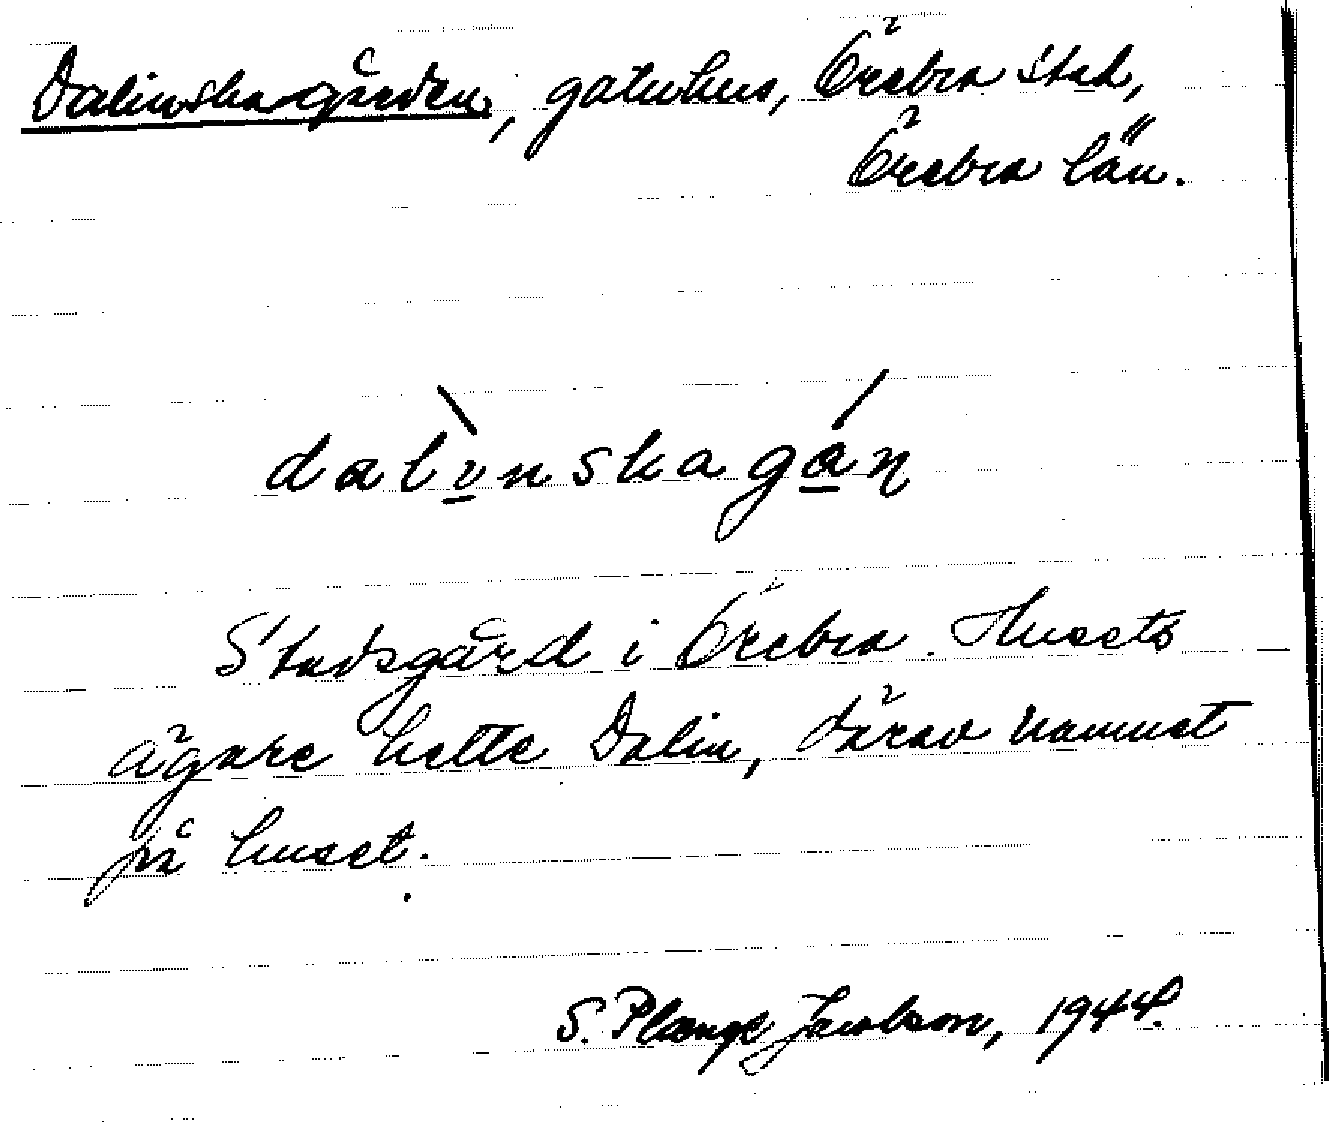 Dalinska gården, gatuhus, Örebro stad,
Örebro län.
dalinskagán
Stadsgård i Örebro. Husets
ägare hette Dalin, därav namnet
på huset.
S. Plænge Jacobson, 1944.